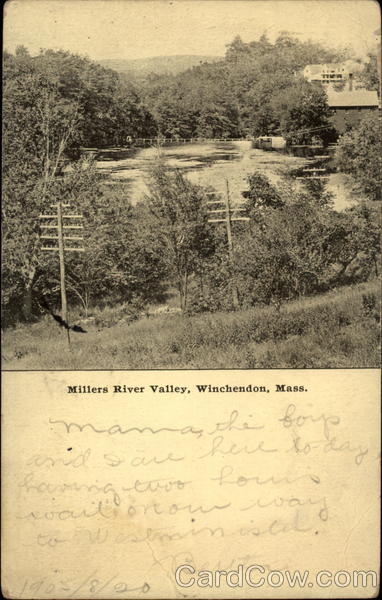 Millers River Valley, Winchendon, Mass.
Mama, the boys
and I are here to day,
having two hours
wait on our way
to Westminister.
1905/8/20
CardCow.com